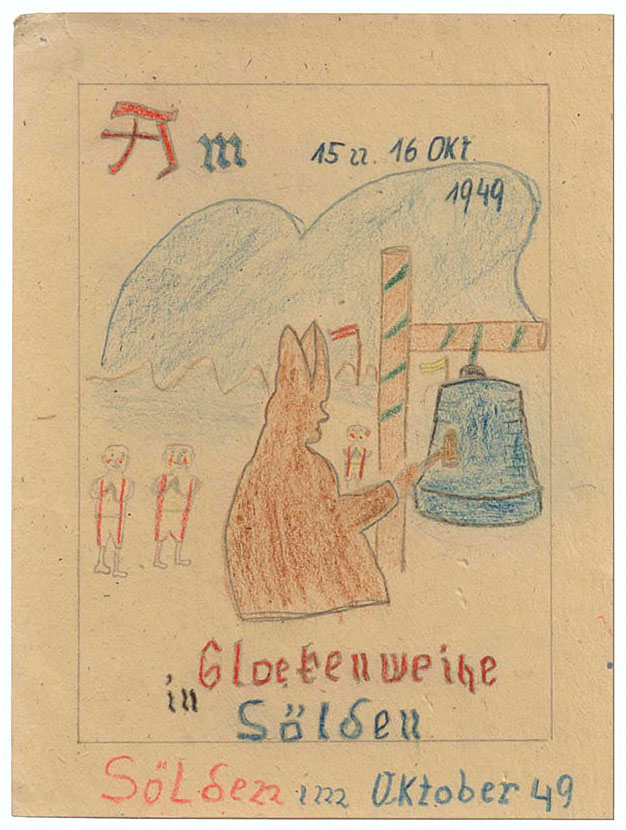 Am
15 u. 16 Okt.
1949
Glockenweihe
in Sölden
Sölden im Oktober 49